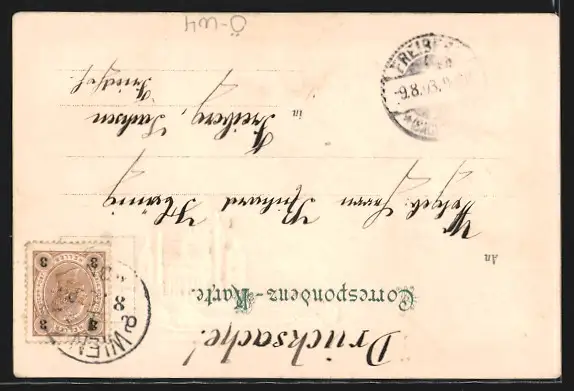 Drucksache!
Correspondenz-Karte.
An
Wolgeb. Herrn Richard
in Freiberg, Sachsen
WIEN
3 3
3 3
FREIBERG
-9.8.98.
Ö-W4